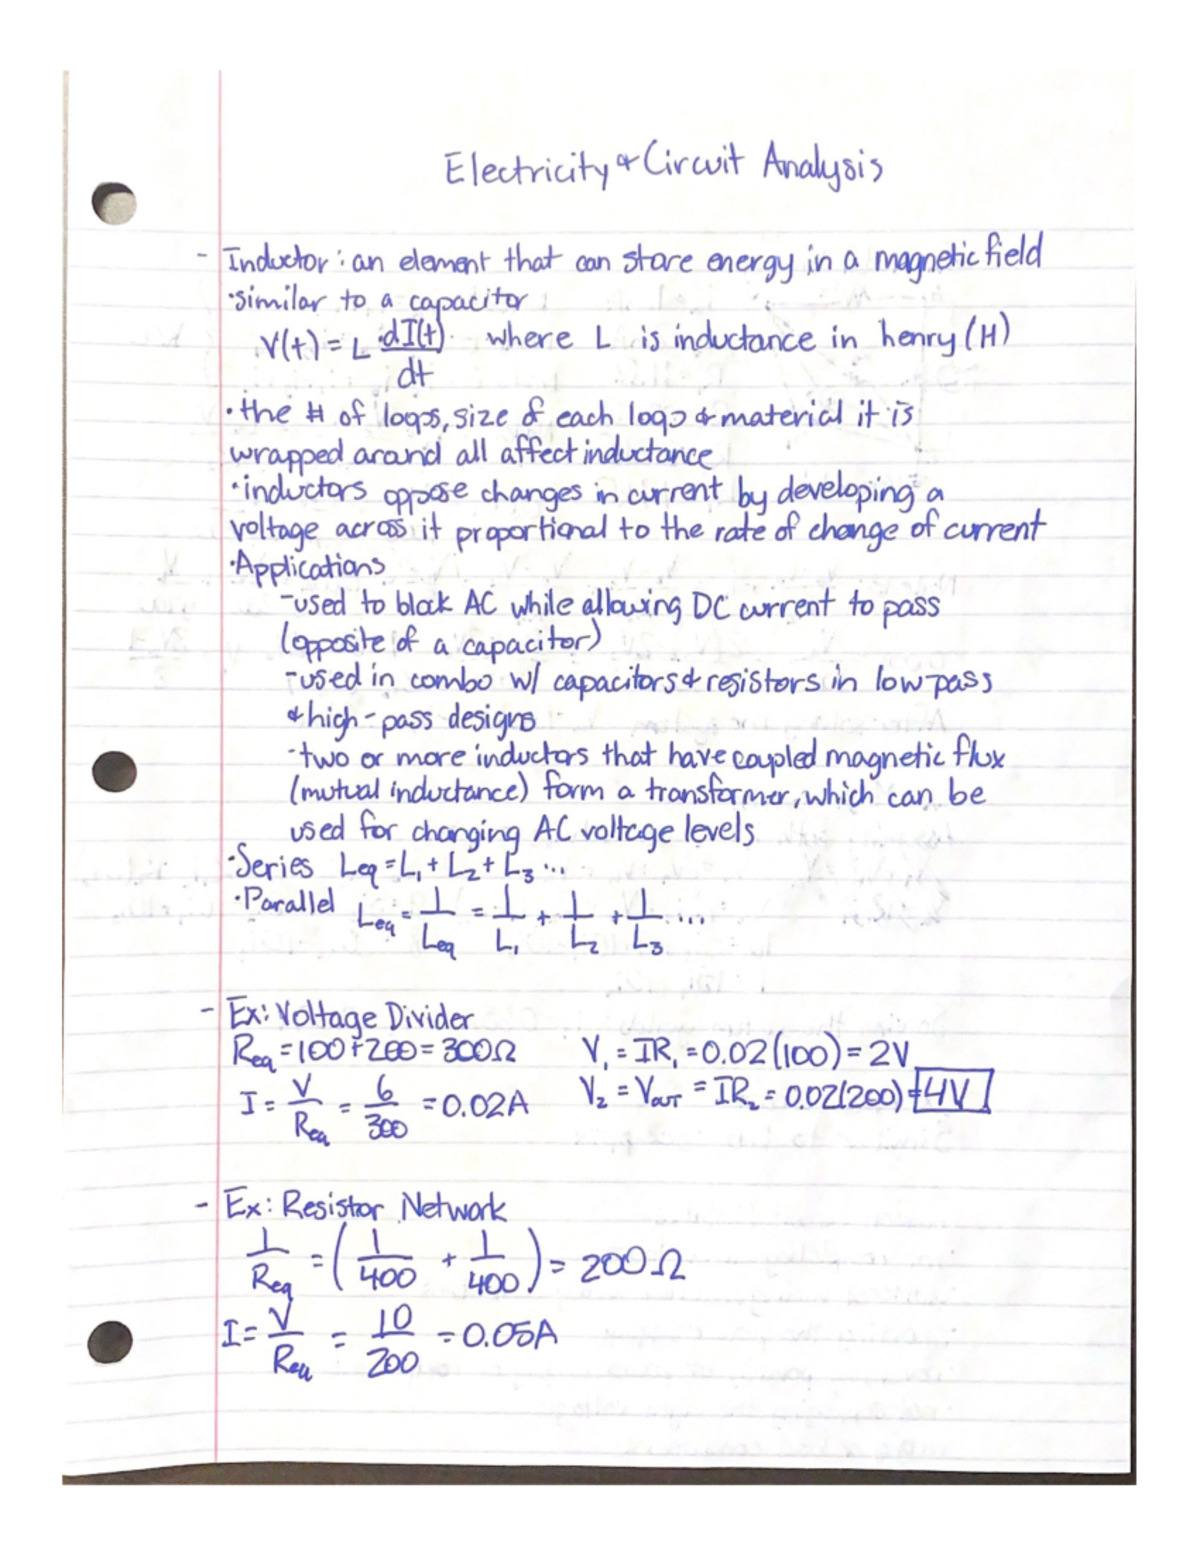 Electricity & Circuit Analysis
- Inductor: an element that can store energy in a magnetic field
·similar to a capacitor
V(t) = L dI(t)/dt where L is inductance in henry (H)
·the # of loops, size of each loop & material it is
wrapped around all affect inductance
·inductors oppose changes in current by developing a
voltage across it proportional to the rate of change of current
·Applications
-used to block AC while allowing DC current to pass
(opposite of a capacitor)
-used in combo w/ capacitors & resistors in low-pass
& high-pass designs
-two or more inductors that have coupled magnetic flux
(mutual inductance) form a transformer, which can be
used for changing AC voltage levels
·Series Leq = L1 + L2 + L3 ...
·Parallel Leq = 1/Leq = 1/L1 + 1/L2 + 1/L3 ...
- Ex: Voltage Divider
Req = 100 + 200 = 300Ω V1 = IR1 = 0.02(100) = 2V
I = V/Req = 6/300 = 0.02A V2 = VOUT = IR2 = 0.02(200) = 4V
- Ex: Resistor Network
1/Req = (1/400 + 1/400) = 200Ω
I = V/Req = 10/200 = 0.05A